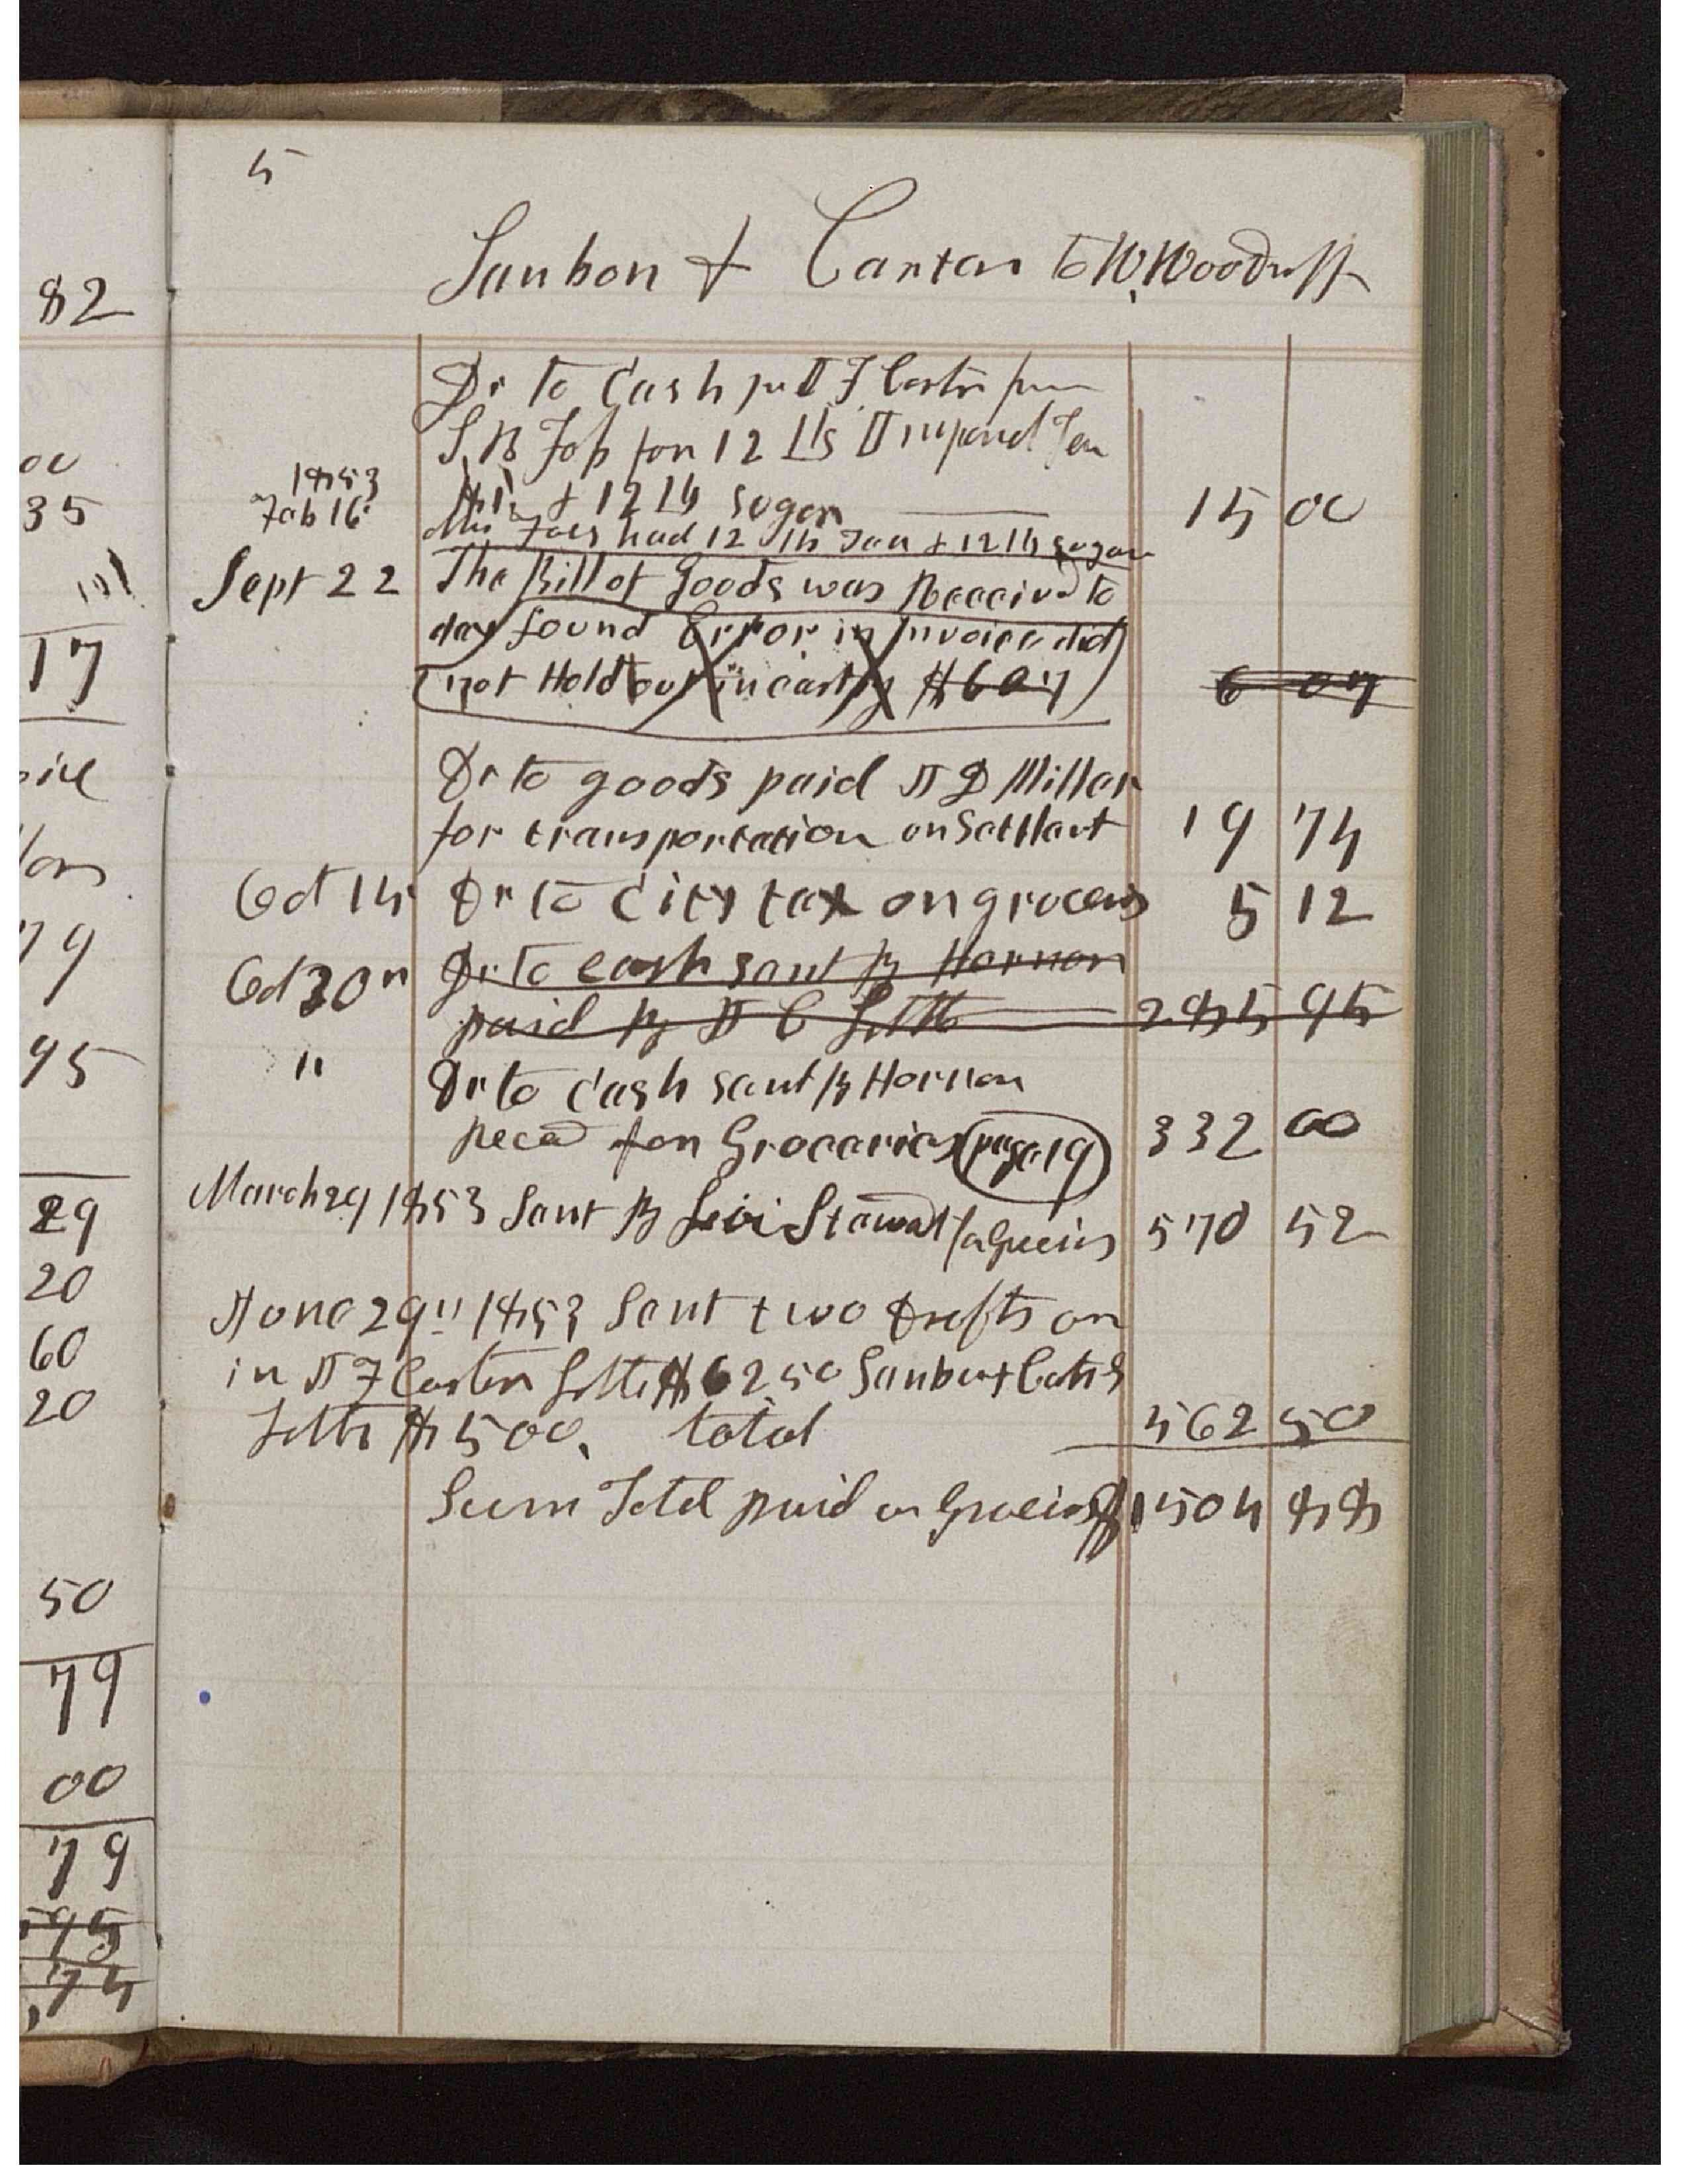 4
Sanbon & Carter to W. Woodruff
82
Dr to Cash pr I F Carter from
S. B Foss for 12 lbs Imperial Tea
00
1853
35
Feb 16
$1. & 12 lb sugar 15 00
Mrs Foss had 12 lb Tea & 12 lb sugar
Sept 22 The Bill of goods was Received to
day found Error in Invoice did
17
not Hold out in casting $6 07 6 07
Dr to goods paid D Miller
for transportation on Settlent 19 74
Oct 14 Dr to City tax on groceries 5 12
79
Dr to cash sent By Hornon
Oct 30" paid By 285 95
95
" Dr to Cash sent By Hornon
Recd for Groceries page 19 332 00
March 29 1853 Sent By Levi Stewart for Groceries 570 52
29
20
June 29" 1853 Sent two drafts on
60
in I F Carter Letter $62.50 Sanbon & Carters
20
Letter $500. total 562 50
Sum Totel paid on Groceries $1504 88
50
79
00
79
95
74